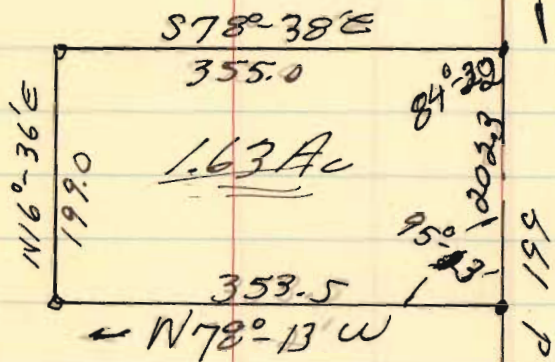 S78°-38'E
355.0
84°-32
N16°-36'E
199.0
1.63 Ac
202.3
95°
23-
199
353.5
N78°-13'W